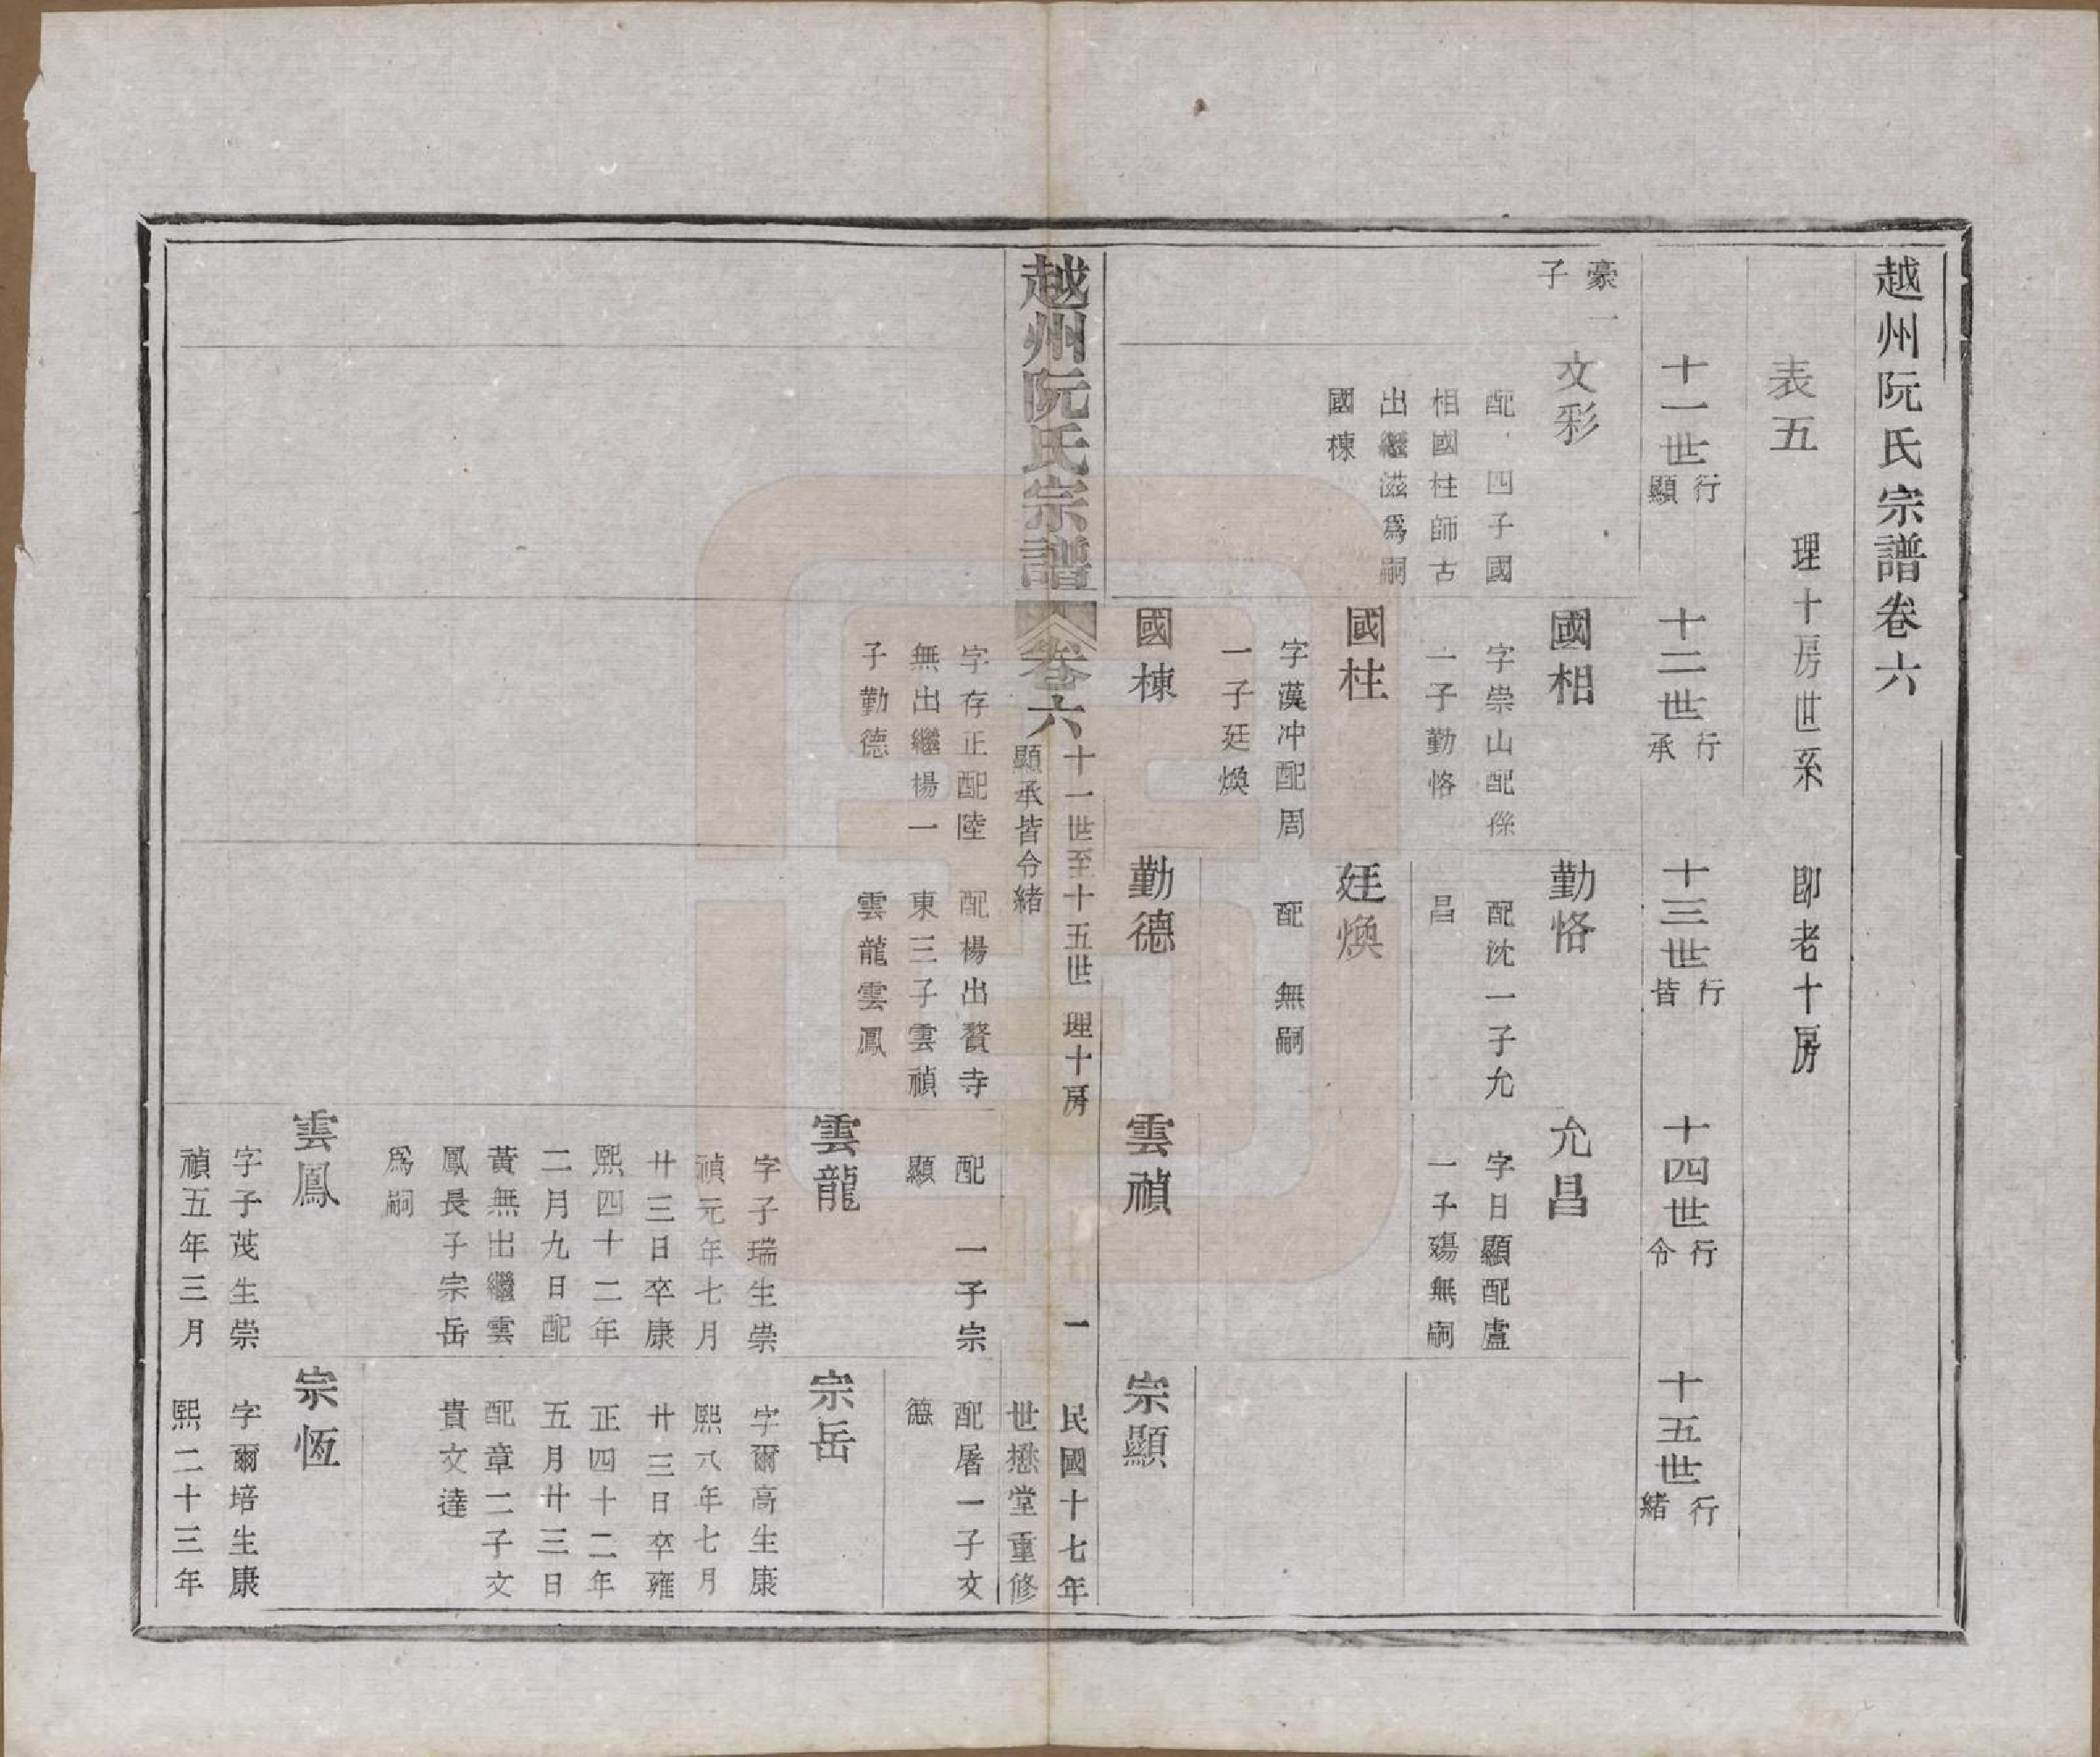 越州阮氏宗譜卷六
表五　理十房世系　即老十房
十一世行顯
十二世行承
十三世行皆
十四世行令
十五世行緒
豪一
子
文彩
配　四子國
相國柱師古
出繼滋爲嗣
國棟
國相
字崇山配
一子勤恪
勤恪
配沈一子允
昌
允昌
字日顯配盧
一子殤無嗣
國柱
字漢冲配周
一子廷煥
廷煥
配　無嗣
國棟
字存正配陸
無出繼楊一
子勤德
勤德
配楊出贅寺
東三子雲禎
雲龍雲鳳
雲禎
配　一子宗
顯
宗顯
配屠一子文
德
越州阮氏宗譜
卷六
十一世至十五世　理十房
顯承皆令緒
一
民國十七年
世懋堂重修
雲龍
字子瑞生崇
禎元年七月
廿三日卒康
熙四十二年
二月九日配
黃無出繼雲
鳳長子宗岳
爲嗣
宗岳
字爾高生康
熙八年七月
廿三日卒雍
正四十二年
五月廿三日
配章二子文
貴文達
雲鳳
字子茂生崇
禎五年三月
宗恆
字爾培生康
熙二十三年